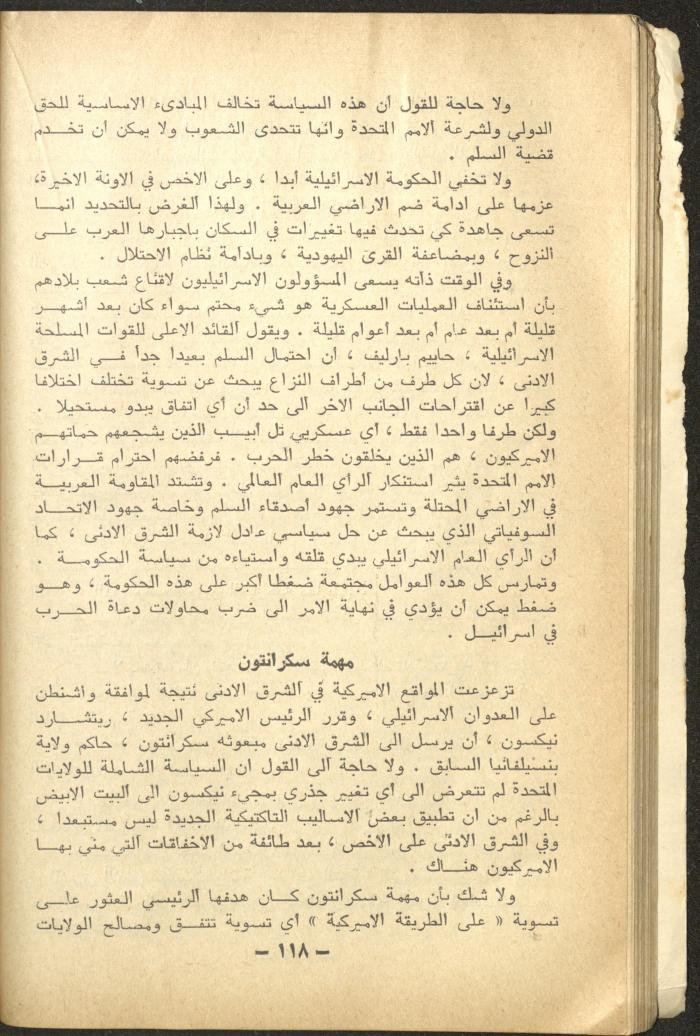 ولا حاجة للقول أن هذه السياسة تخالف المبادىء الاساسية للحق
الدولي ولشرعة الامم المتحدة وانها تتحدى الشعوب ولا يمكن أن تخـــدم
قضية السلم .
ولا تخفي الحكومة الاسرائيلية أبدا ، وعلى الاخص في الاونة الاخيرة،
عزمها على ادامة ضم الاراضي العربية . ولهذا الغرض بالتحديد انمـــا
تسعى جاهدة كي تحدث فيها تغييرات في السكان باجبارها العرب علـــى
النزوح ، وبمضاعفة القرى اليهودية ، وبادامة نظام الاحتلال .
وفي الوقت ذاته يسعى المسؤولون الاسرائيليون لاقناع شعب بلادهم
بأن استئناف العمليات العسكرية هو شيء محتم سواء كان بعد أشهـــر
قليلة أم بعد عام أم بعد أعوام قليلة . ويقول القائد الاعلى للقوات المسلحة
الاسرائيلية ، حاييم بارليف ، أن احتمال السلم بعيدا جدا فـــي الشرق
الادنى ، لان كل طرف من أطراف النزاع يبحث عن تسوية تختلف اختلافا
كبيرا عن اقتراحات الجانب الاخر الى حد أن أي اتفاق يبدو مستحيلا .
ولكن طرفا واحدا فقط ، أي عسكريي تل أبيـــب الذين يشجعهم حماتهـــم
الاميركيون ، هم الذين يخلقون خطر الحرب . فرفضهم احترام قـــرارات
الامم المتحدة يثير استنكار الرأي العام العالمي . وتشتد المقاومة العربيـــة
في الاراضي المحتلة وتستمر جهود أصدقاء السلم وخاصة جهود الاتحـــاد
السوفياتي الذي يبحث عن حل سياسي عادل لازمة الشرق الادنى ، كما
أن الرأي العام الاسرائيلي يبدي قلقه واستياءه من سياسة الحكومـــة .
وتمارس كل هذه العوامل مجتمعة ضغطا أكبر على هذه الحكومة ، وهـــو
ضغط يمكن أن يؤدي في نهاية الامر الى ضرب محاولات دعاة الحـــرب
في اسرائيـــل .
مهمة سكرانتون
تزعزعت المواقع الاميركية في الشرق الادنى نتيجة لموافقة واشنطن
على العدوان الاسرائيلي ، وقرر الرئيس الاميركي الجديد ، ريتشـــارد
نيكسون ، أن يرسل الى الشرق الادنى مبعوثه سكرانتون ، حاكم ولاية
بنسيلفانيا السابق . ولا حاجة الى القول ان السياسة الشاملة للولايات
المتحدة لم تتعرض الى أي تغيير جذري بمجيء نيكسون الى البيت الابيض
بالرغم من ان تطبيق بعض الاساليب التاكتيكية الجديدة ليس مستبعدا ،
وفي الشرق الادنى على الاخص ، بعد طائفة من الاخفاقات التي مني بهـــا
الاميركيون هنـــاك .
ولا شك بأن مهمة سكرانتون كـــان هدفها الرئيسي العثور علـــى
تسوية « على الطريقة الاميركية » أي تسوية تتفـــق ومصالح الولايات
– ١١٨ –